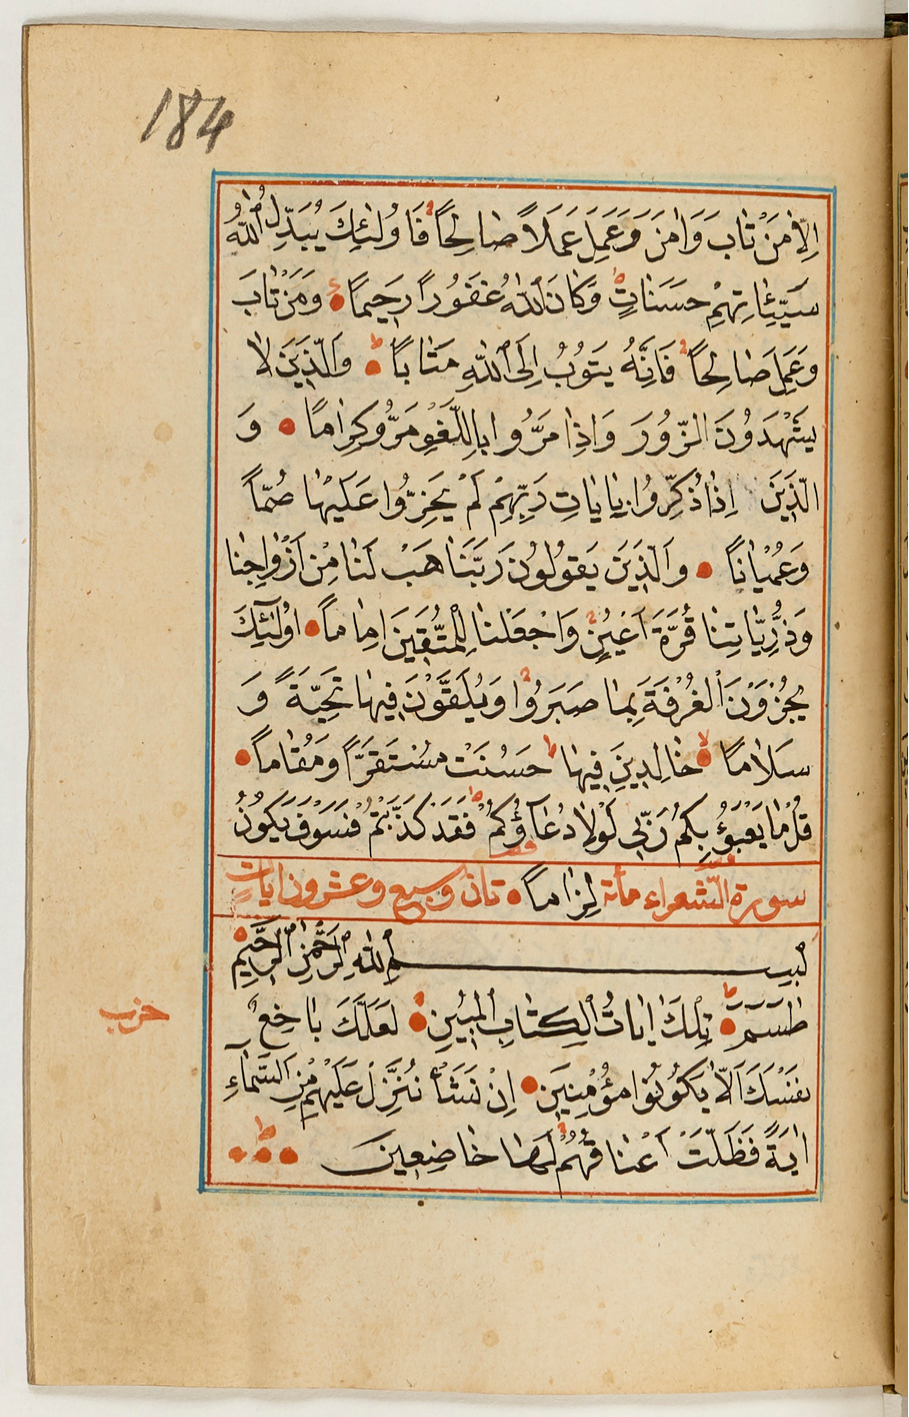 184
اِلَّا مَنْ تَابَ وَاٰمَنَ وَعَمِلَ عَمَلًا صَالِحًا فَاُولٰئِكَ يُبَدِّلُ اللّٰهُ
سَيِّئَاتِهِمْ حَسَنَاتٍ وَكَانَ اللّٰهُ غَفُورًا رَحِيمًا وَمَنْ تَابَ
وَعَمِلَ صَالِحًا فَاِنَّهُ يَتُوبُ اِلَى اللّٰهِ مَتَابًا وَالَّذِينَ لَا
يَشْهَدُونَ الزُّورَ وَاِذَا مَرُّوا بِاللَّغْوِ مَرُّو كِرَامًا وَ
الَّذِينَ اِذَا ذُكِّرُوا بِاٰيَاتِ رَبِّهِمْ لَمْ يَخِرُّوا عَلَيْهَا صُمًّا
وَعُمْيَانًا وَالَّذِينَ يَقُولُونَ رَبَّنَا هَبْ لَنَا مِنْ اَزْوَاجِنَا
وَذُرِّيَّاتِنَا قُرَّةَ اَعْيُنٍ وَاجْعَلْنَا لِلْمُتَّقِينَ اِمَامًا اُولٰئِكَ
يُجْزَوْنَ الْغُرْفَةَ بِمَا صَبَرُوا وَيُلَقَّوْنَ فِيهَا تَحِيَّةً وَ
سَلَامًا خَالِدِينَ فِيهَا حَسُنَتْ مُسْتَقَرًّا وَمُقَامًا
قُلْ مَا يَعْبَؤُ بِكُمْ رَبِّى لَوْلَا دُعَآؤُكُمْ فَقَدْ كَذَّبْتُمْ فَسَوْفَ يَكُونُ
سورة الشعراء مأته لِزَامًا تان وسبع وعشرون ايات
بِسْمِ اللّٰهِ الرَّحْمٰنِ الرَّحِيمِ
طٰسٓمٓ تِلْكَ اٰيَاتُ الْكِتَابِ الْمُبِينِ لَعَلَّكَ بَاخِعٌ
نَفْسَكَ اَلَّا يَكُونُوا مُؤْمِنِينَ اِنْ نَشَأْ نُنَزِّلْ عَلَيْهِمْ مِنَ السَّمَآءِ
حزب
اٰيَةً فَظَلَّتْ اَعْنَاقُهُمْ لَهَا خَاضِعِينَ